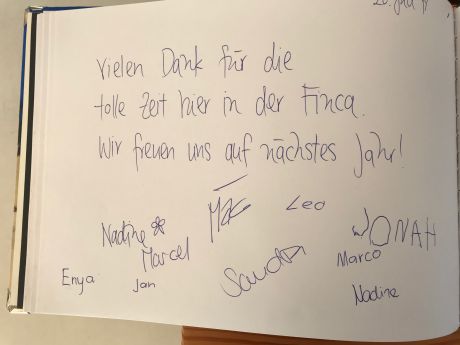 Vielen Dank für die
tolle Zeit hier in der Finca.
Wir freuen uns auf nächstes Jahr!
Leo
Nadine
JONAH
Marcel
Marco
Enya
Jan
Sandra
Nadine